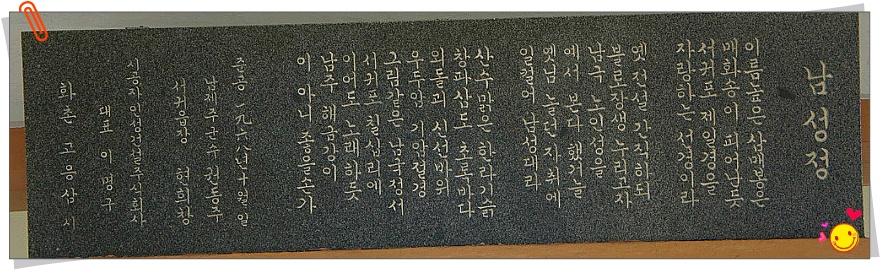 남성정
이름높은 삼매봉은
매화송이 피어난듯
서귀포 제일경을
자랑하는 서경이라
옛 전설 간직하되
불로장생 노인도자
남극 노인성을
예서 본다했거늘
옛님 놀던 자취에
일컬어 남성대라
산수맑은 한라기슭
창파삼도 초록바다
외돌괴 신선바위
우두암 기암절경
그림같은 남국정서
서귀포 칠십리에
이어도 노래하듯
남주 해금강이
이 아니 좋을손가
준공 一九六八년十월 일
남제주군수 김동주
서귀읍장 현희창
시공자 안성건설주식회사
대표 이명구
학촌 고응삼 시